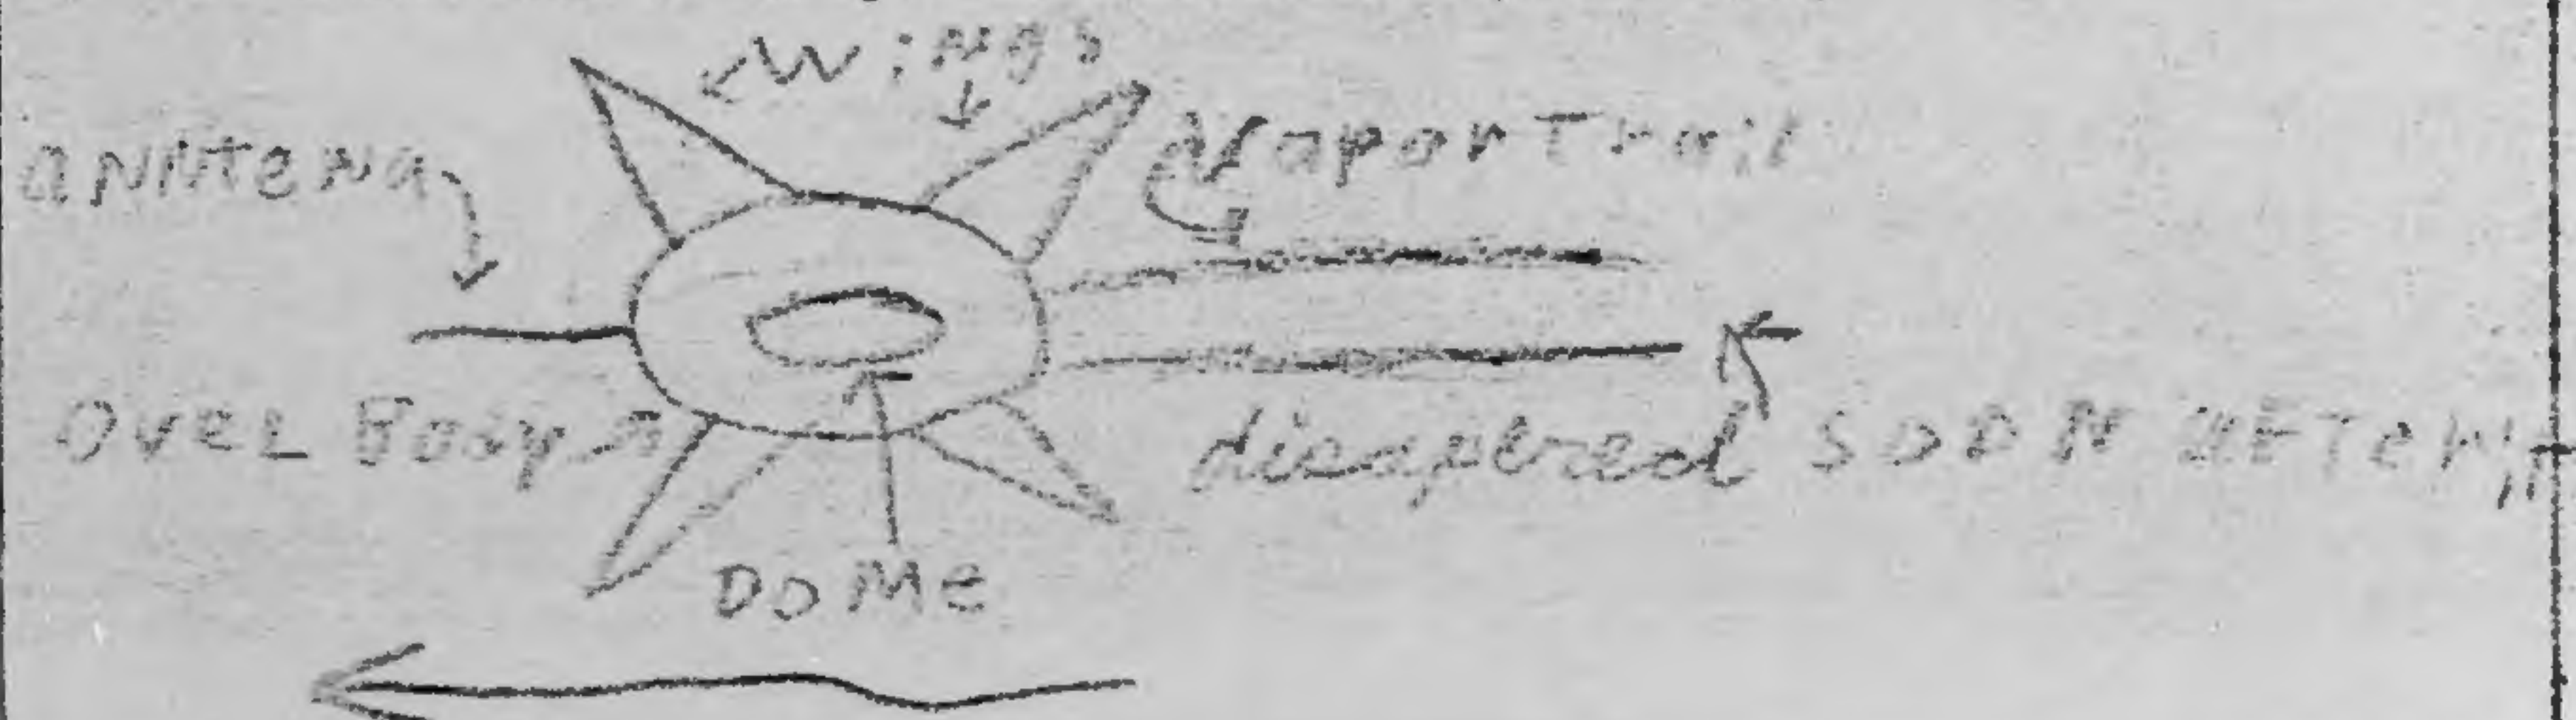 Wings
annTena
Vapor Trail
OVeL Body
disapered SOON aFTer
DOMe